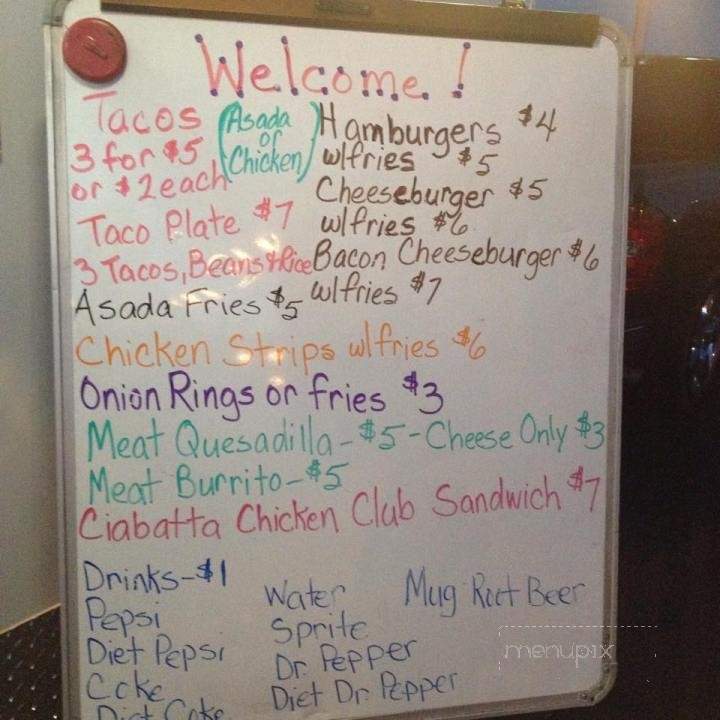 Welcome!
Tacos
3 for $5
or $2 each
(Asada
or
Chicken)
Taco Plate $7
3 Tacos, Beans & Rice
Asada Fries $5
Hamburgers $4
w/fries $5
Cheeseburger $5
w/fries $6
Bacon Cheeseburger $6
w/fries $7
Chicken Strips w/fries $6
Onion Rings or fries $3
Meat Quesadilla - $5 - Cheese Only $3
Meat Burrito - $5
Ciabatta Chicken Club Sandwich $7
Drinks - $1
Pepsi
Diet Pepsi
Coke
Diet Coke
Water
Sprite
Dr. Pepper
Diet Dr. Pepper
Mug Root Beer
menupix